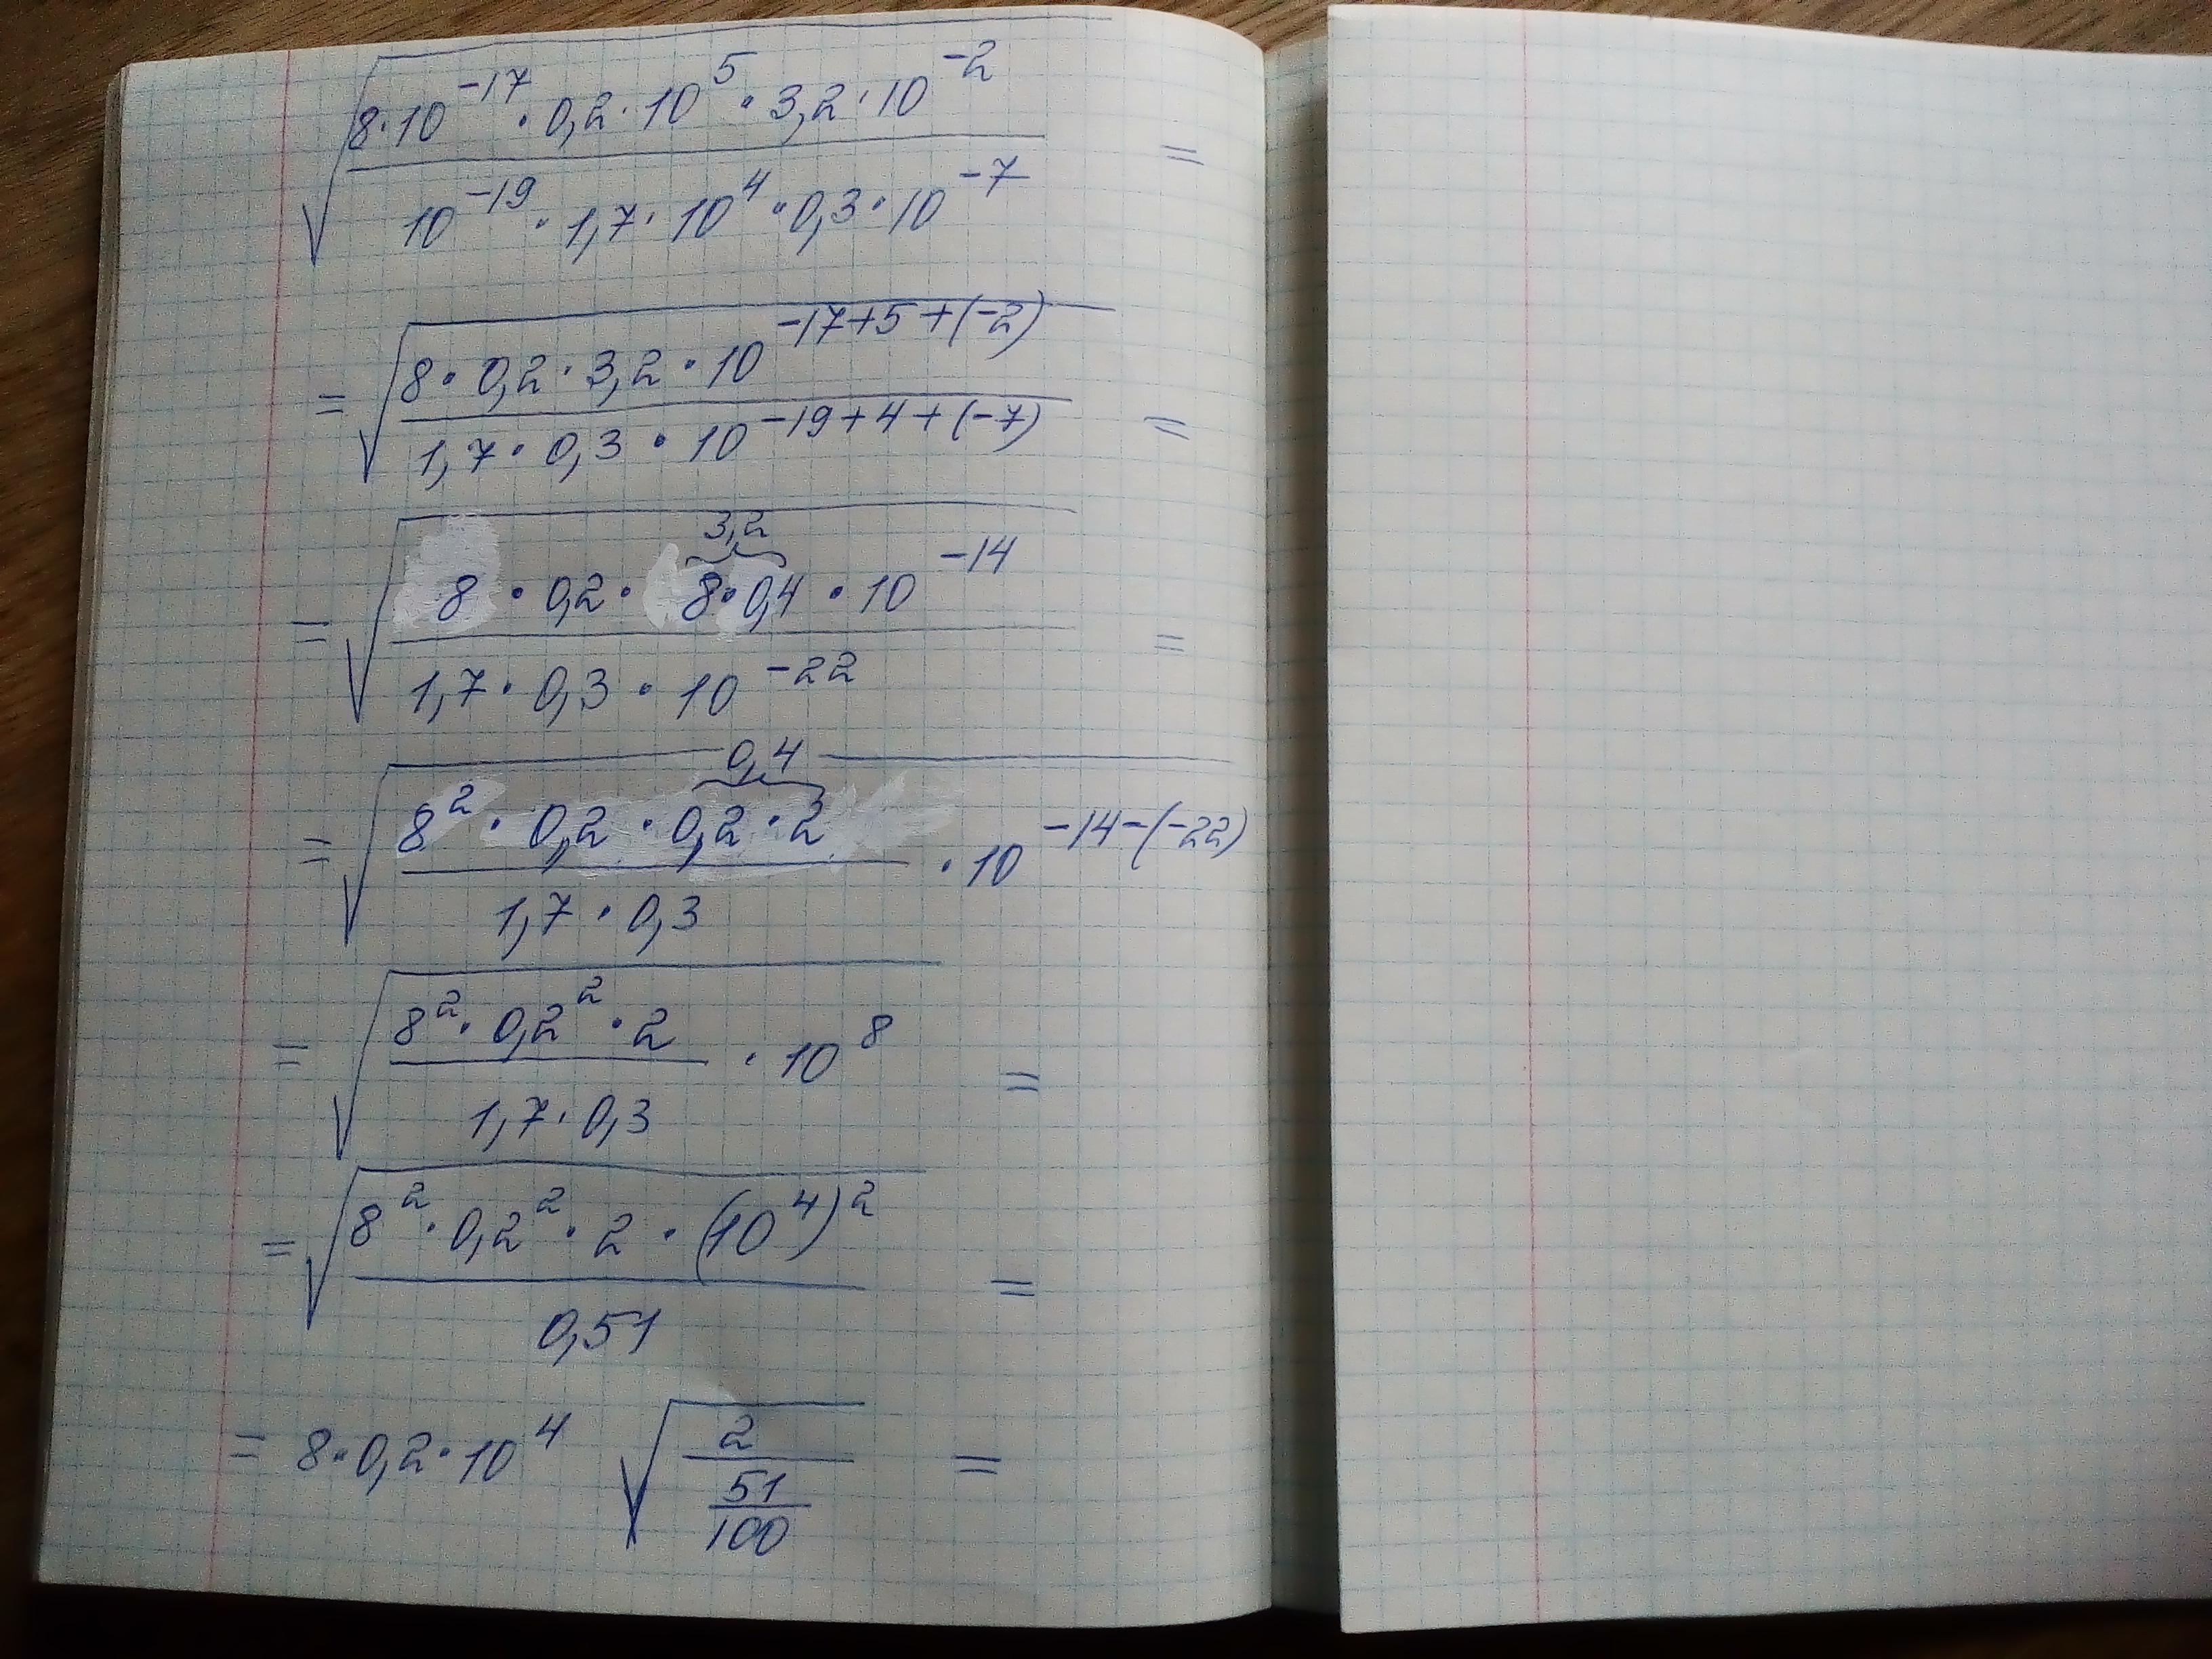 √(8·10^-17 · 0,2·10^5 · 3,2·10^-2 / 10^-19 · 1,7·10^4 · 0,3·10^-7) =
= √(8·0,2·3,2·10^-17+5+(-2) / 1,7·0,3·10^-19+4+(-7)) =
3,2
= √(8·0,2·8·0,4·10^-14 / 1,7·0,3·10^-22) =
0,4
= √(8^2·0,2·0,2·2 / 1,7·0,3 ·10^-14-(-22))
= √(8^2·0,2^2·2 / 1,7·0,3 ·10^8) =
= √(8^2·0,2^2·2·(10^4)^2 / 0,51) =
= 8·0,2·10^4 √(2 / 51/100) =